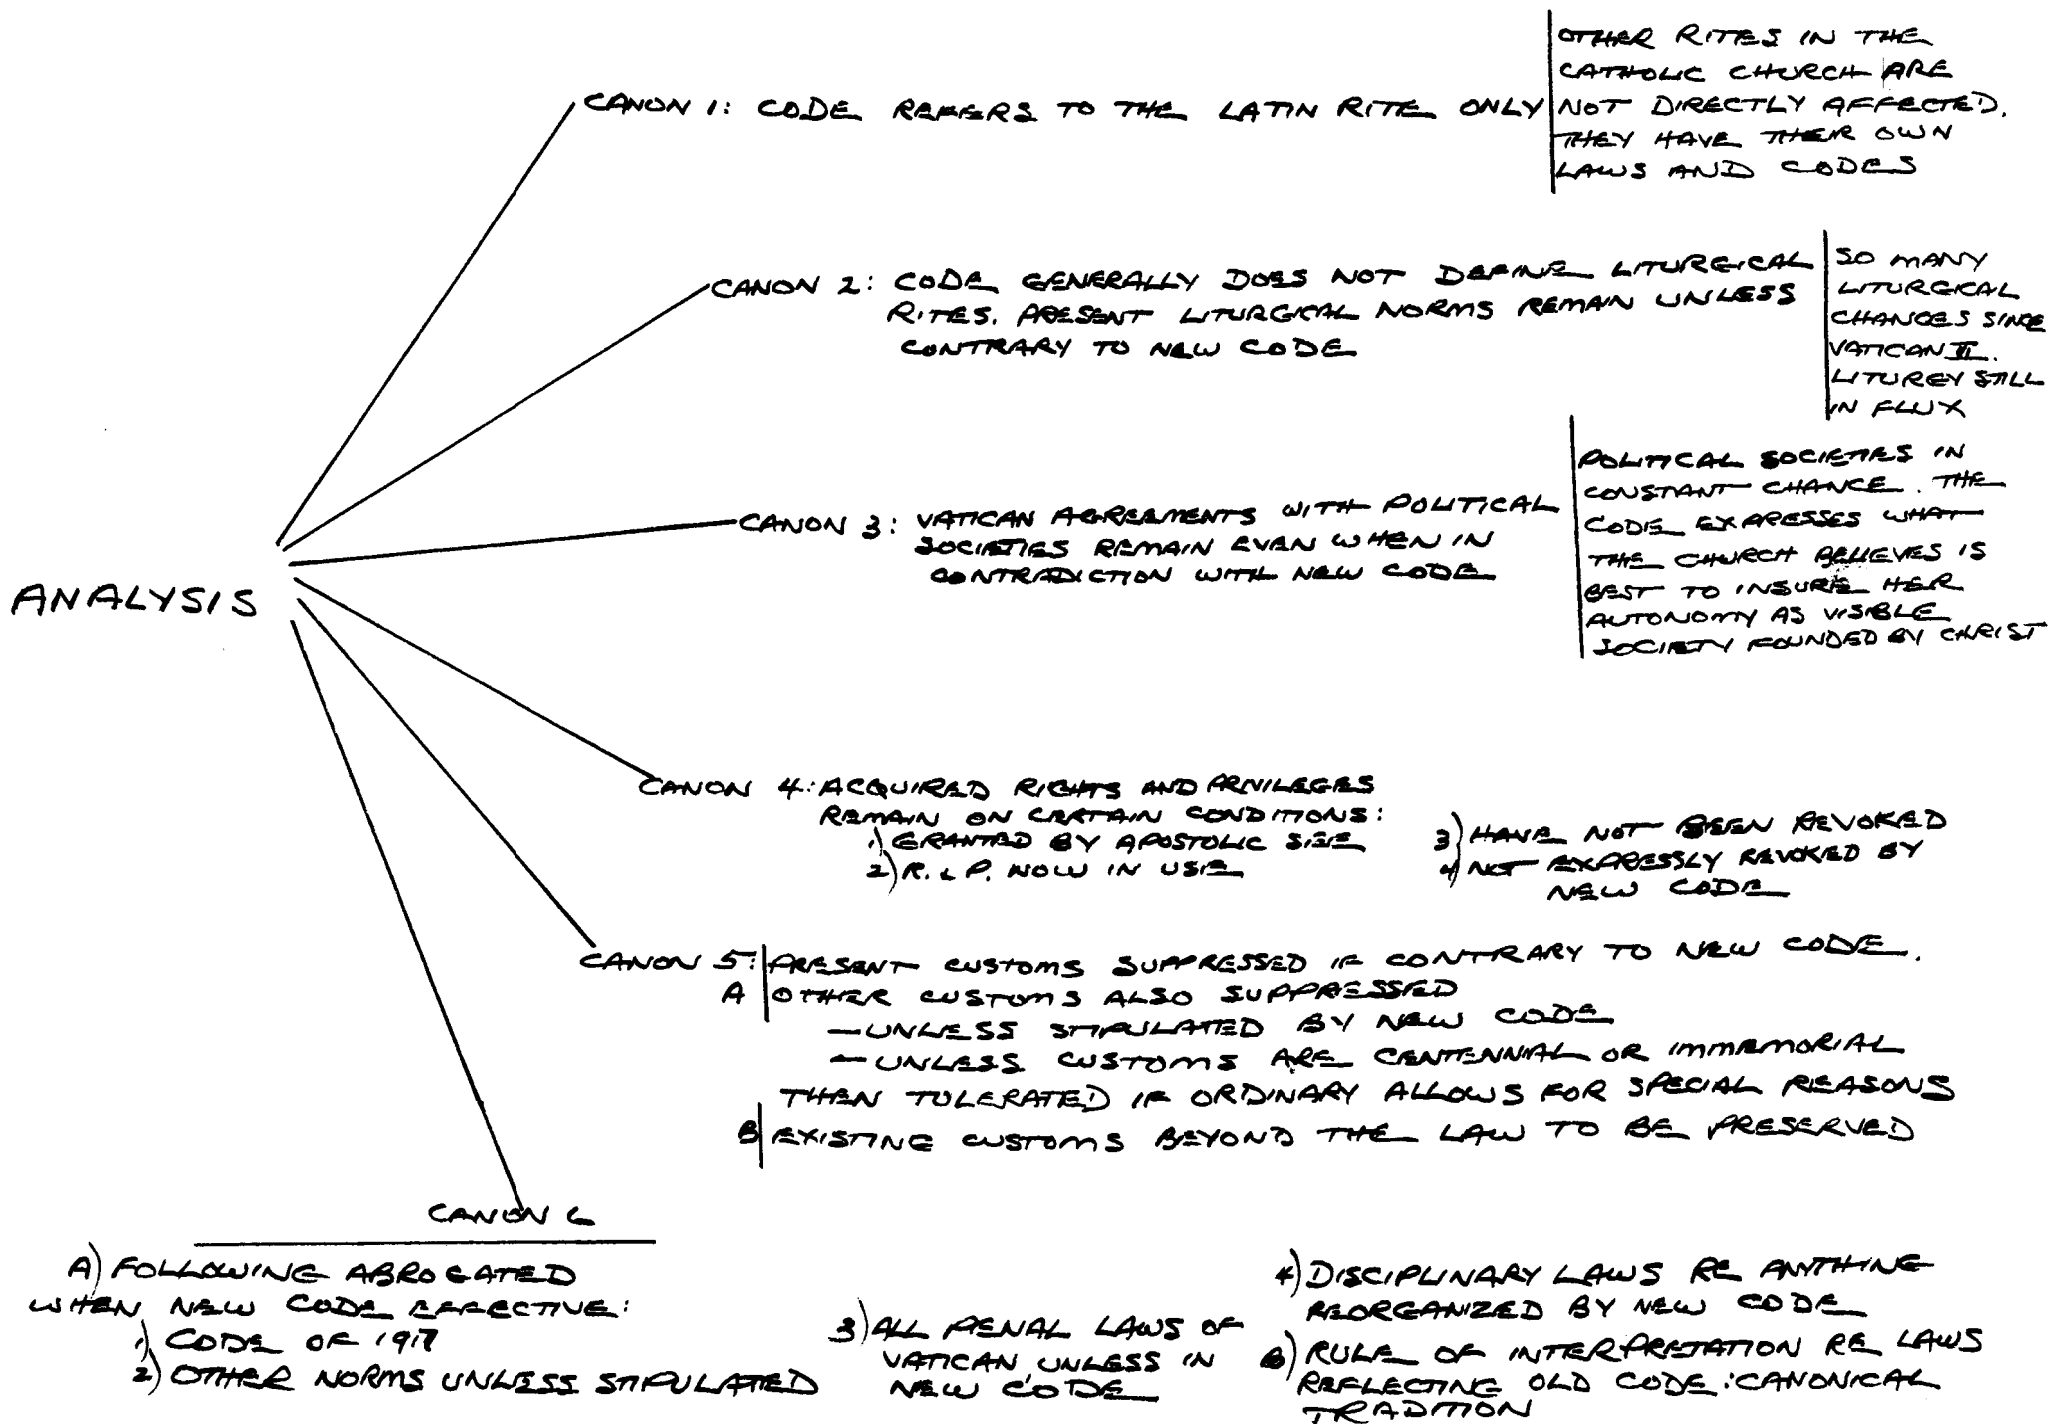 CANON 1: CODE REFERS TO THE LATIN RITE ONLY
OTHER RITES IN THE
CATHOLIC CHURCH ARE
NOT DIRECTLY AFFECTED.
THEY HAVE THEIR OWN
LAWS AND CODES
CANON 2: CODE GENERALLY DOES NOT DEFINE LITURGICAL
RITES. PRESENT LITURGICAL NORMS REMAIN UNLESS
CONTRARY TO NEW CODE
SO MANY
LITURGICAL
CHANGES SINCE
VATICAN II.
LITURGY STILL
IN FLUX
CANON 3: VATICAN AGREEMENTS WITH POLITICAL
SOCIETIES REMAIN EVEN WHEN IN
CONTRADICTION WITH NEW CODE
POLITICAL SOCIETIES IN
CONSTANT CHANGE. THE
CODE EXPRESSES WHAT
THE CHURCH BELIEVES IS
BEST TO INSURE HER
AUTONOMY AS VISIBLE
SOCIETY FOUNDED BY CHRIST
ANALYSIS
CANON 4: ACQUIRED RIGHTS AND PRIVILEGES
REMAIN ON CERTAIN CONDITIONS:
1) GRANTED BY APOSTOLIC SEE
2) R. & P. NOW IN USE
3) HAVE NOT BEEN REVOKED
4) NOT EXPRESSLY REVOKED BY
NEW CODE
CANON 5: PRESENT CUSTOMS SUPPRESSED IF CONTRARY TO NEW CODE.
A OTHER CUSTOMS ALSO SUPPRESSED
- UNLESS STIPULATED BY NEW CODE
- UNLESS CUSTOMS ARE CENTENNIAL OR IMMEMORIAL
THEN TOLERATED IF ORDINARY ALLOWS FOR SPECIAL REASONS
B EXISTING CUSTOMS BEYOND THE LAW TO BE PRESERVED
CANON 6
A) FOLLOWING ABROGATED
WHEN NEW CODE EFFECTIVE:
1) CODE OF 1917
2) OTHER NORMS UNLESS STIPULATED
3) ALL PENAL LAWS OF
VATICAN UNLESS IN
NEW CODE
4) DISCIPLINARY LAWS RE ANYTHING
REORGANIZED BY NEW CODE
B) RULE OF INTERPRETATION RE LAWS
REFLECTING OLD CODE: CANONICAL
TRADITION